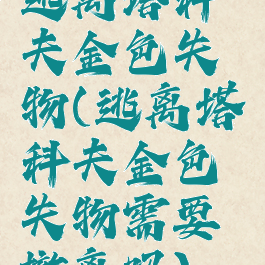 逃离塔科
夫金色失
物(逃离塔
科夫金色
失物需要
撤离吗)